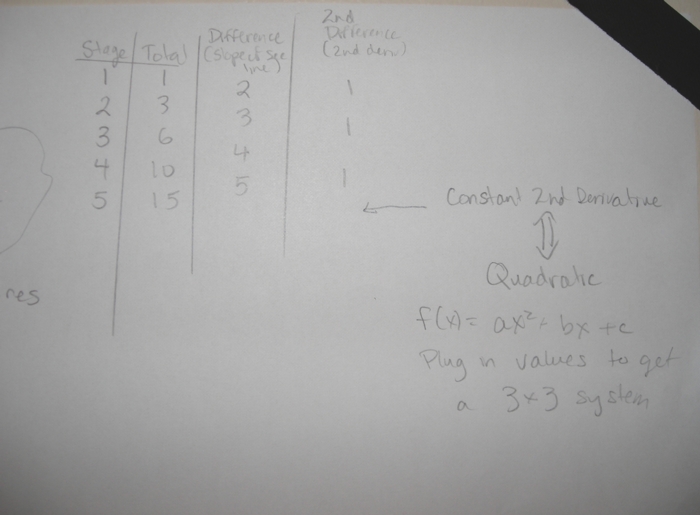 Stage Total Difference 2nd
(slope of sec Difference
line) (2nd deriv)
1 1
2 1
2 3
3
3 6 1
4
4 10
5 1
5 15
Constant 2nd Derivative
Quadratic
f(x)= ax²+ bx +c
Plug in values to get
a 3x3 system
res